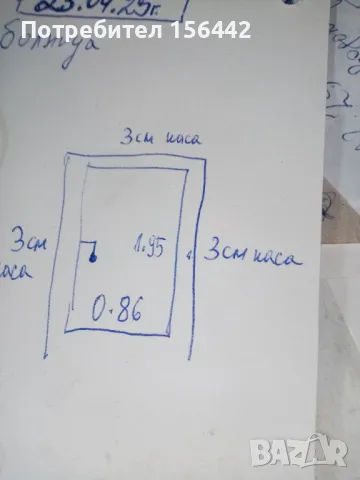 Потребител 156442
23.04.25г.
3 см каса
3см
каса
1.95
3 см каса
0.86
BAZAR